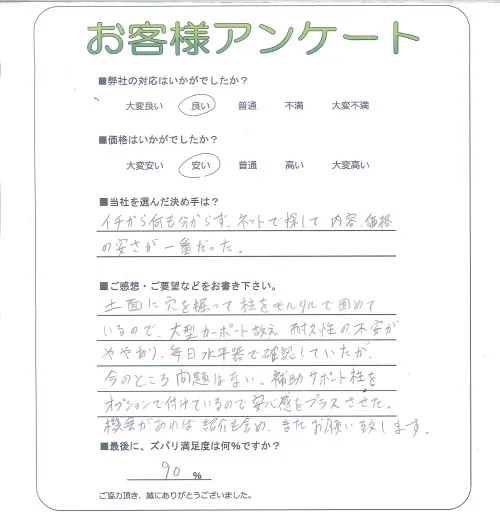 お客様アンケート
■弊社の対応はいかがでしたか？
大変良い 良い 普通 不満 大変不満
■価格はいかがでしたか？
大変安い 安い 普通 高い 大変高い
■当社を選んだ決め手は？
イチから何も分からず、ネットで探して 内容、価格
の安さが一番だった。
■ご感想・ご要望などをお書き下さい。
土面に穴を掘って柱をモルタルで固めて
いるので、大型カーポート故え 耐久性の不安が
ややあり、毎日水平器で確認していたが、
今のところ問題はない。補助サポート柱を
オプションで付けているので安心感をプラスさせた。
機会があれば紹介も含め、またお願い致します。
■最後に、ズバリ満足度は何%ですか？
90 %
ご協力頂き、誠にありがとうございました。